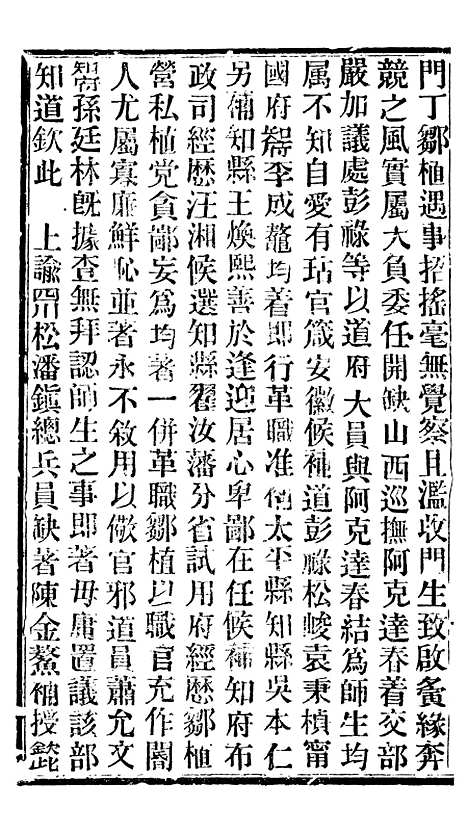 門丁鄒植遇事招搖毫無覺察且濫收門生致啟夤緣奔
競之風實屬大負委任開缺山西巡撫阿克達春着交部
嚴加議處彭祿等以道府大員與阿克達春結爲師生均
属不知自愛有玷官箴安徽候補道彭祿松峻袁秉楨甯
國府知府李成鼇均着即行革職准補太平縣知縣吳本仁
另補知縣王煥熙善於逢迎居心卑鄙在任候補知府布
政司經歷汪湘候選知縣翟汝藩分省試用府經歷鄒植
營私植党貪鄙妄爲均著一併革職鄒植以職官充作閽
人尤屬寡廉鮮恥並著永不敘用以儆官邪道員蕭允文
知府孫廷林旣據查無拜認師生之事即著毋庸置議該部
知道欽此　上諭四川松潘鎭總兵員缺著陳金鰲補授欽此